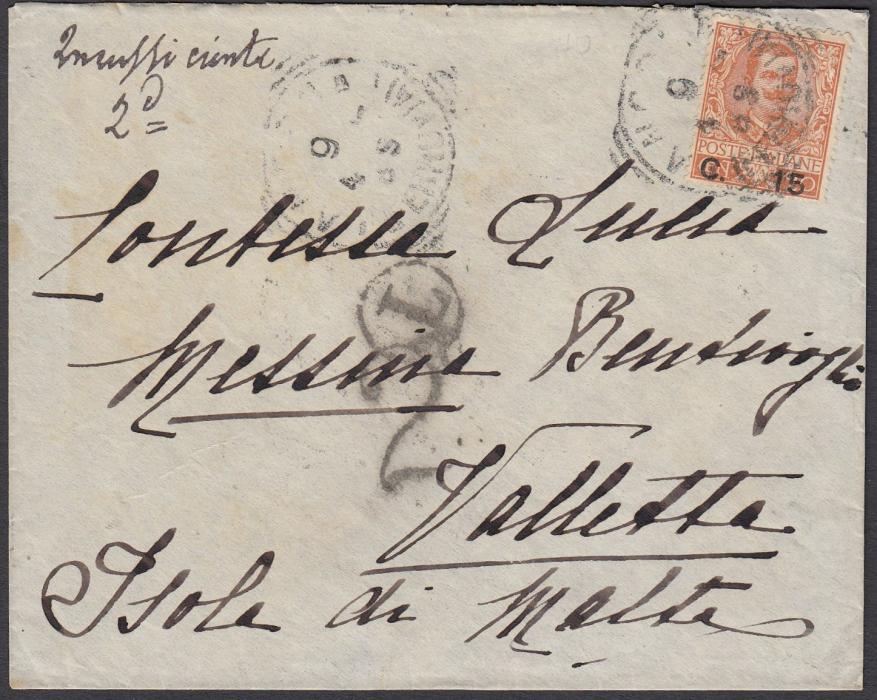 Insufficiente
2d
POSTE ITALIANE
C. 15
T
2
Contessa Lucia
Messina Bentivoglio
Valletta
Isola di Malta